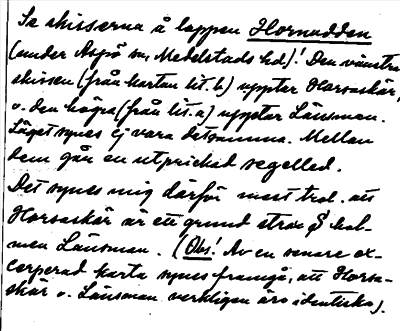 Se skisserna å lappen Hornudden
(under Aspö sn, Medelstads hd)! Den vänstra
skissen (från kartan lit. b) upptar Horsaskär,
o. den högra (från lit. a) upptar Länsman.
Läget synes ej vara detsamma. Mellan
dem går en utprickad segelled.
Det synes mig därför mest trol. att
Horsaskär är ett grund strax hol-
men Länsman. (Obs! Av en senare ex-
cerperad karta synes framgå, att Horsa-
skär o. Länsman verkligen äro identiska).